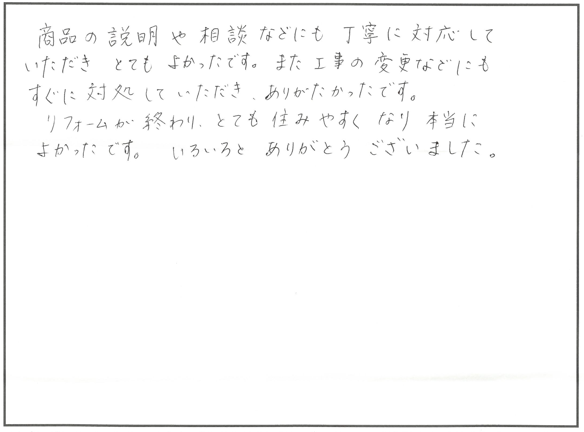 商品の説明や相談などにも丁寧に対応して
いただきとてもよかったです。また工事の変更などにも
すぐに対処していただき、ありがたかったです。
リフォームが終わり、とても住みやすくなり本当に
よかったです。いろいろとありがとうございました。